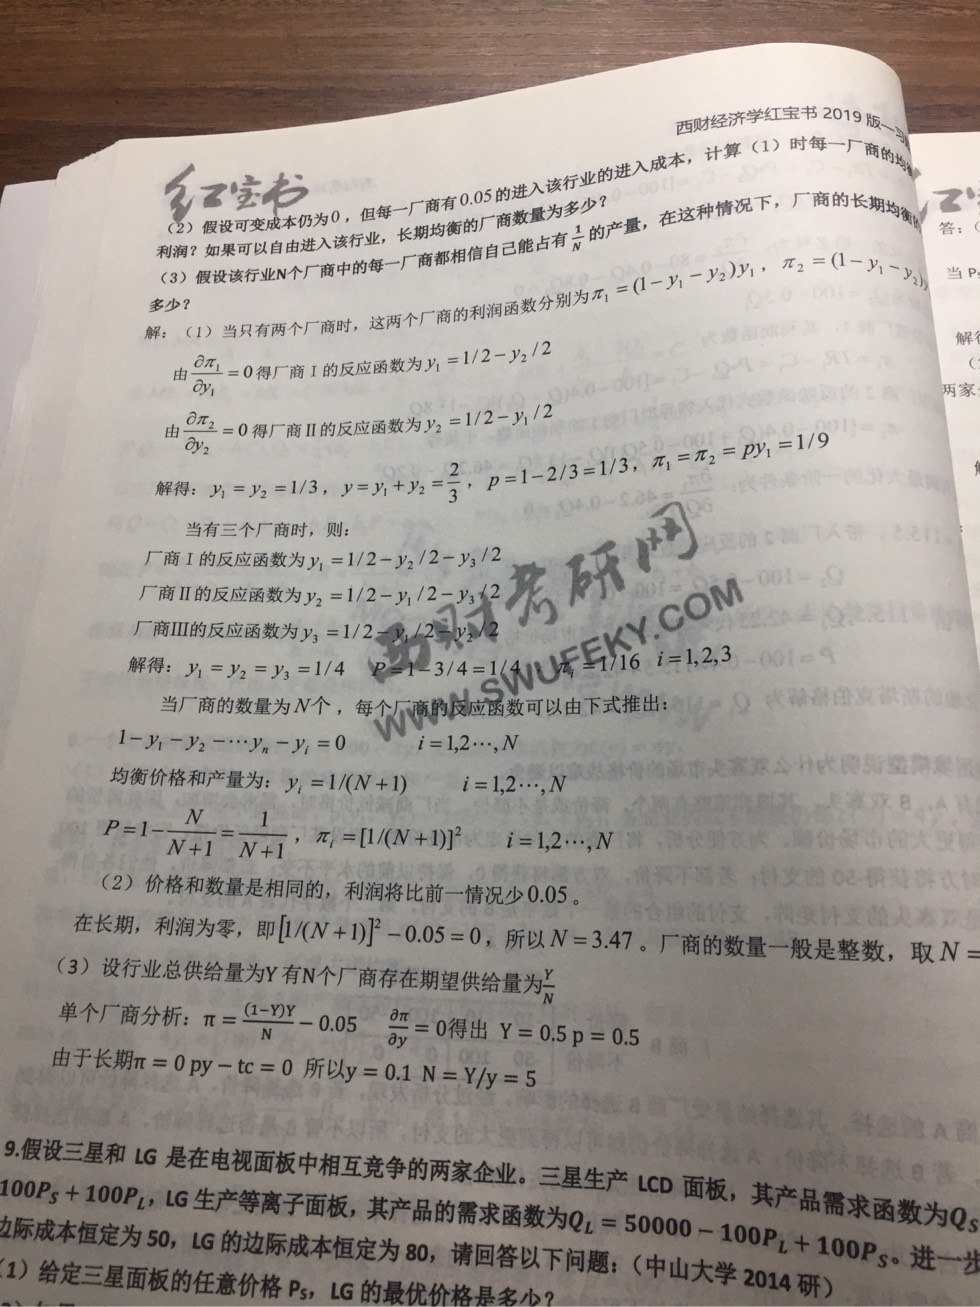 西财经济学红宝书 2019 版—习
红宝书
(2) 假设可变成本仍为0，但每一厂商有0.05的进入该行业的进入成本，计算（1）时每一厂商的均衡
利润？如果可以自由进入该行业，长期均衡的厂商数量为多少？
(3) 假设该行业N个厂商中的每一厂商都相信自己能占有 1/N 的产量，在这种情况下，厂商的长期均衡的
多少？
解：（1）当只有两个厂商时，这两个厂商的利润函数分别为π₁ = (1−y₁−y₂)y₁，π₂ = (1−y₁−y₂)y
由 ∂π₁/∂y₁ = 0 得厂商Ⅰ的反应函数为 y₁ = 1/2 − y₂/2
由 ∂π₂/∂y₂ = 0 得厂商Ⅱ的反应函数为 y₂ = 1/2 − y₁/2
解得：y₁ = y₂ = 1/3，y = y₁ + y₂ = 2/3，p = 1−2/3 = 1/3，π₁ = π₂ = py₁ = 1/9
当有三个厂商时，则：
厂商Ⅰ的反应函数为 y₁ = 1/2 − y₂/2 − y₃/2
厂商Ⅱ的反应函数为 y₂ = 1/2 − y₁/2 − y₃/2
厂商Ⅲ的反应函数为 y₃ = 1/2 − y₁/2 − y₂/2
解得：y₁ = y₂ = y₃ = 1/4 P = 1−3/4 = 1/4 πᵢ = 1/16 i = 1,2,3
西财考研网
WWW.SWUFEKY.COM
当厂商的数量为N个，每个厂商的反应函数可以由下式推出：
1−y₁−y₂−⋯yₙ−yᵢ = 0 i = 1,2⋯,N
均衡价格和产量为：yᵢ = 1/(N+1) i = 1,2⋯,N
P = 1 − N/(N+1) = 1/(N+1)，πᵢ = [1/(N+1)]² i = 1,2⋯,N
（2）价格和数量是相同的，利润将比前一情况少0.05。
在长期，利润为零，即[1/(N+1)]² − 0.05 = 0，所以N = 3.47。厂商的数量一般是整数，取N =
（3）设行业总供给量为Y 有N个厂商存在期望供给量为 Y/N
单个厂商分析：π = (1−Y)Y/N − 0.05 ∂π/∂y = 0得出 Y = 0.5 p = 0.5
由于长期π = 0 py − tc = 0 所以y = 0.1 N = Y/y = 5
9.假设三星和 LG 是在电视面板中相互竞争的两家企业。三星生产 LCD 面板，其产品需求函数为Qs
100Ps + 100PL，LG 生产等离子面板，其产品的需求函数为QL = 50000 − 100PL + 100Ps。进一步
边际成本恒定为 50，LG 的边际成本恒定为 80，请回答以下问题：（中山大学 2014 研）
(1) 给定三星面板的任意价格 Ps，LG 的最优价格是多少？
红宝
答：（
当 Ps
解得
两家